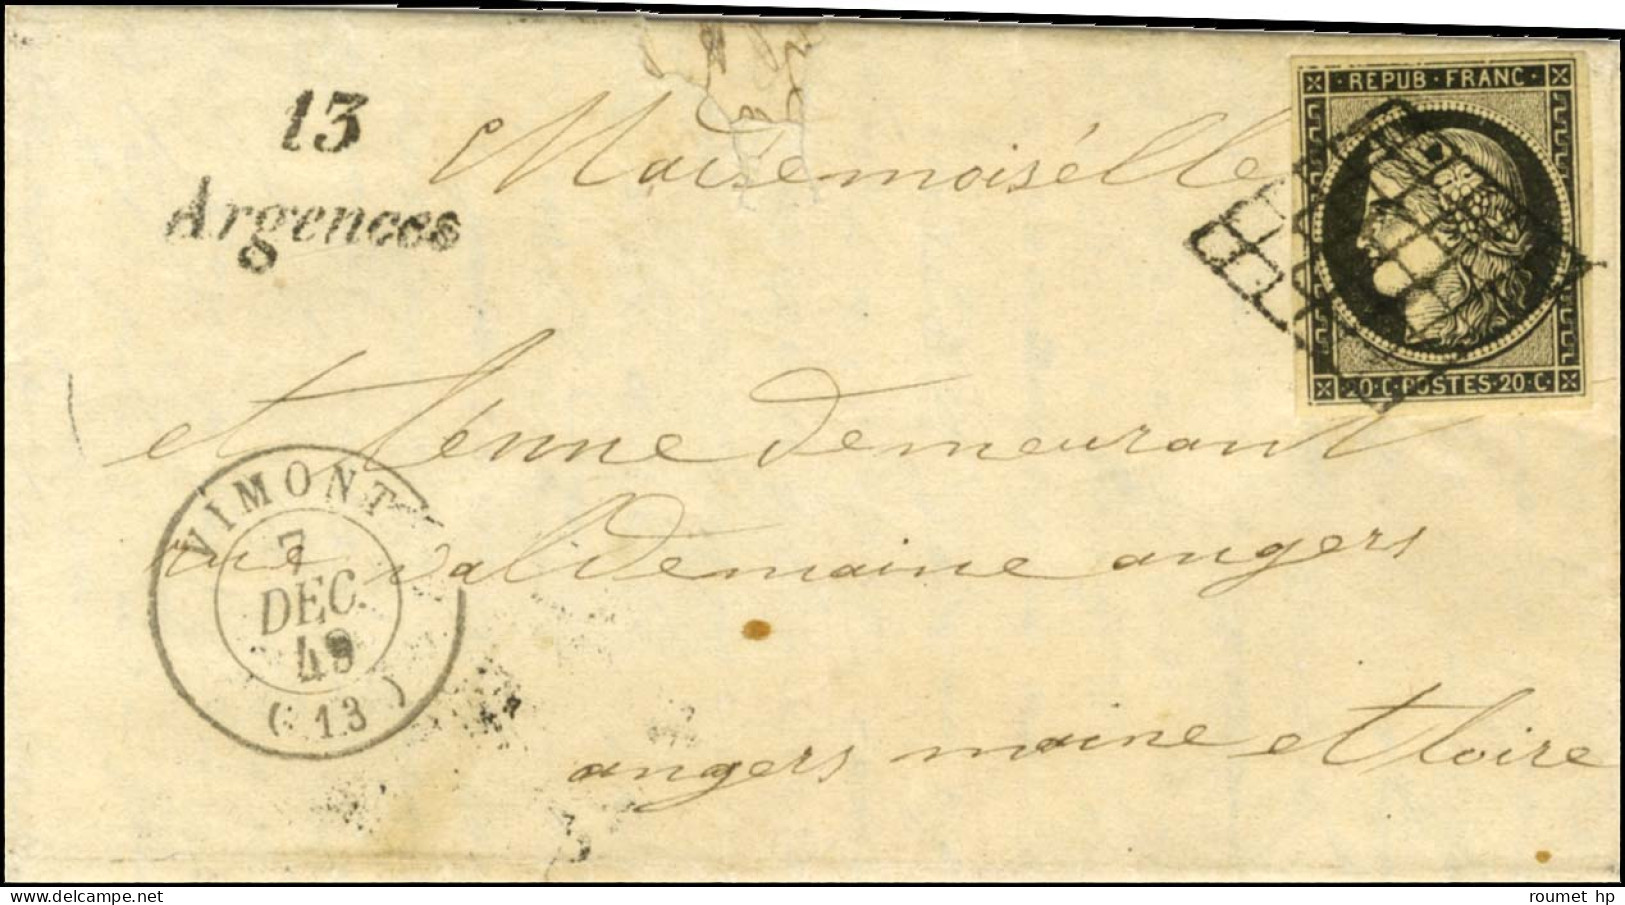 REPUB · FRANC ·
13
Argences
Mademoiselle
20 · C · POSTES · 20 · C ·
et tenne demeurant
VIMONT
7
DEC.
49
(13)
rue valdemaine angers
angers maine et loire
roumet hp